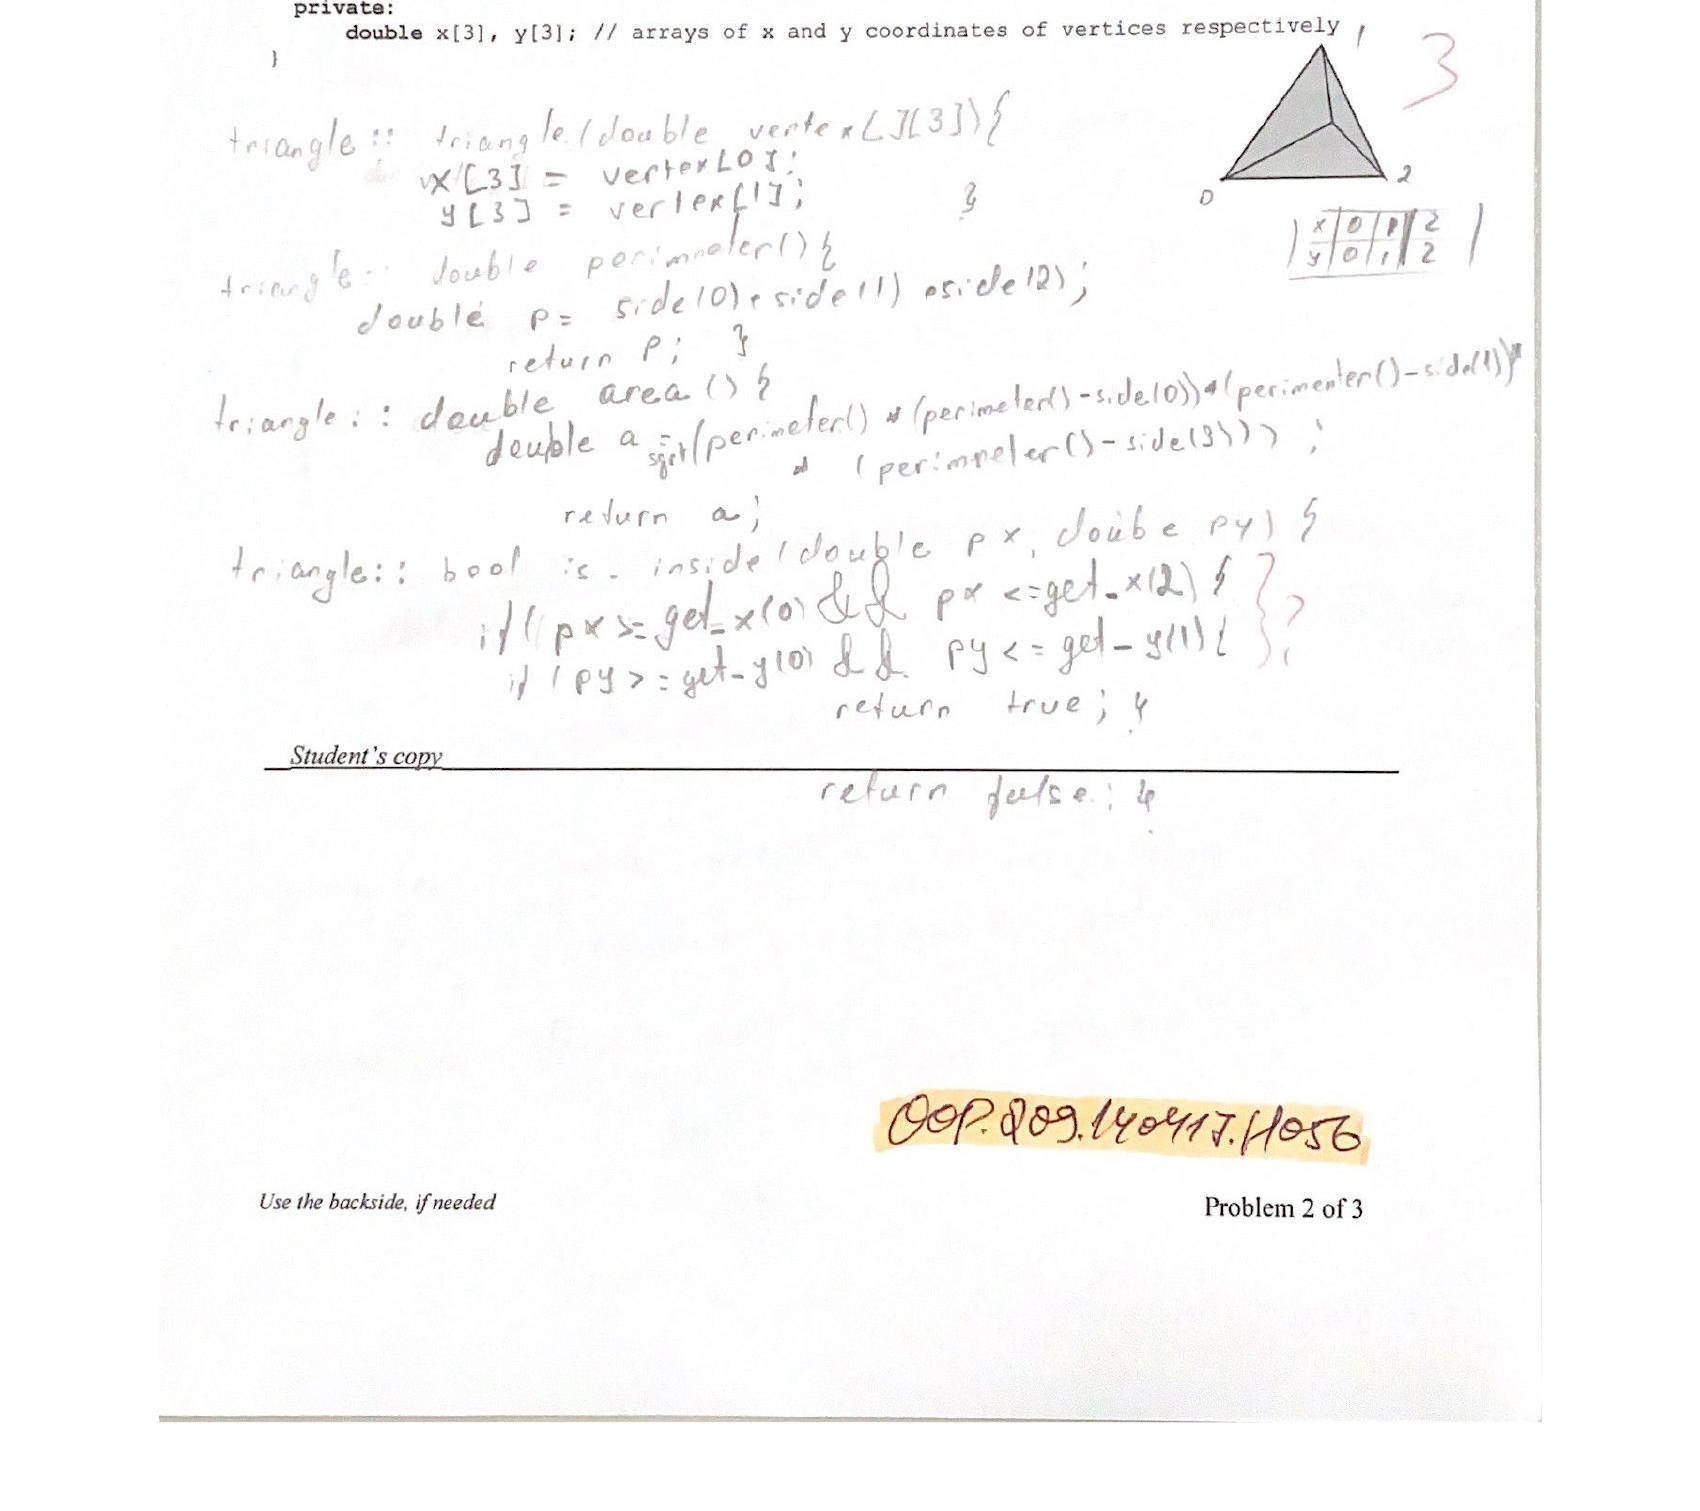 private:
double x[3], y[3]; // arrays of x and y coordinates of vertices respectively
}
1
3
0
2
x 0 1 2
y 0 1 2
triangle:: triangle(double vertex[][3]){
x[3] = vertex[0];
y[3] = vertex[1]; }
triangle:: double perimneter(){
double p= side(0)+side(1)+side(2);
return p; }
triangle:: double area(){
double a = sqrt(perimeter()*(perimeter()-side(0))*(perimenter()-side(1))*
*(perimneter()-side(3)));
return a;
triangle:: bool is_inside(double px, doube py) {
if( px>=get_x(0) && px <=get_x(2){
if(py>=get_y(0) && py<=get_y(1){ ?
return true; }
Student's copy
return false; }
OOP.Q09.140417.H056
Use the backside, if needed
Problem 2 of 3